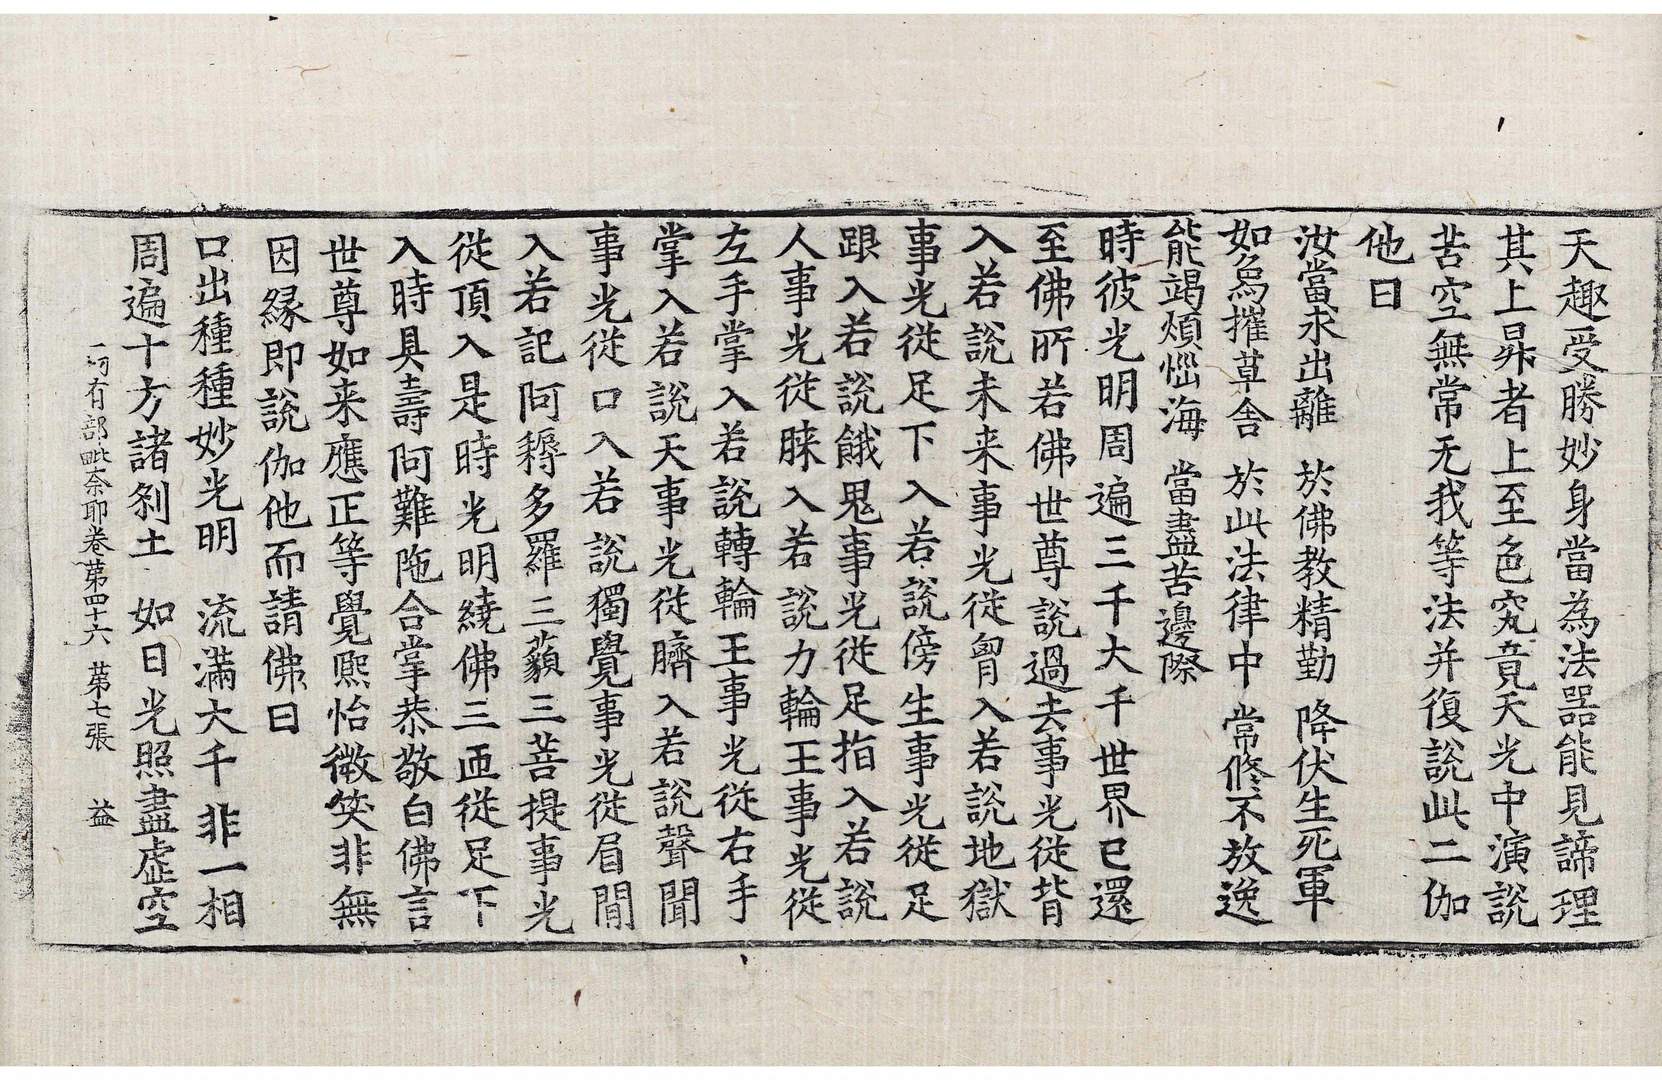 天趣受勝妙身當為法器能見諦理
其上昇者上至色究竟天光中演說
苦空無常无我等法并復說此二伽
他曰
汝當求出離　於佛教精勤　降伏生死軍
如烏摧草舎　於此法律中　常修不放逸
能竭煩惱海　當盡苦邊際
時彼光明周遍三千大千世界已還
至佛所若佛世尊說過去事光從背
入若說未来事光從胷入若說地獄
事光從足下入若說傍生事光從足
跟入若說餓鬼事光從足指入若說
人事光從膝入若說力輪王事光從
左手掌入若說轉輪王事光從右手
掌入若說天事光從臍入若說聲聞
事光從口入若說獨覺事光從眉間
入若記阿耨多羅三藐三菩提事光
從頂入是時光明繞佛三迊從足下
入時具壽阿難陁合掌恭敬白佛言
世尊如来應正等覺熙怡微笑非無
因緣即說伽他而請佛曰
口出種種妙光明　流滿大千非一相
周遍十方諸刹土　如日光照盡虛空
有部毗奈耶卷苐四十六　苐七張　益